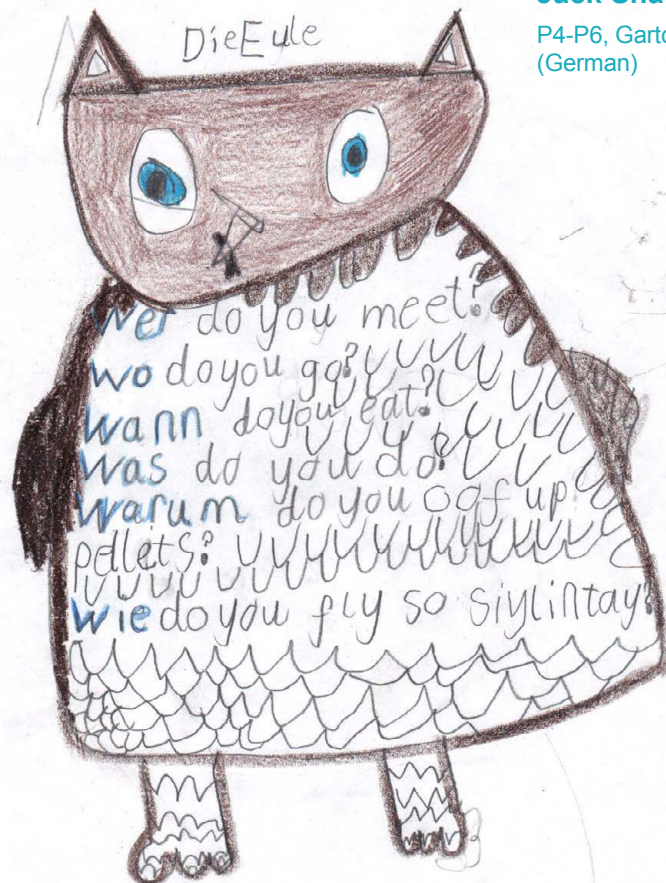 Jack Sha
P4-P6, Garto
(German)
DieEule
Wer do you meet?
wo doyou go?
Wann doyou eat?
Was do you do?
Warum do you cof up
pellets?
Wie do you fly so siylintay?